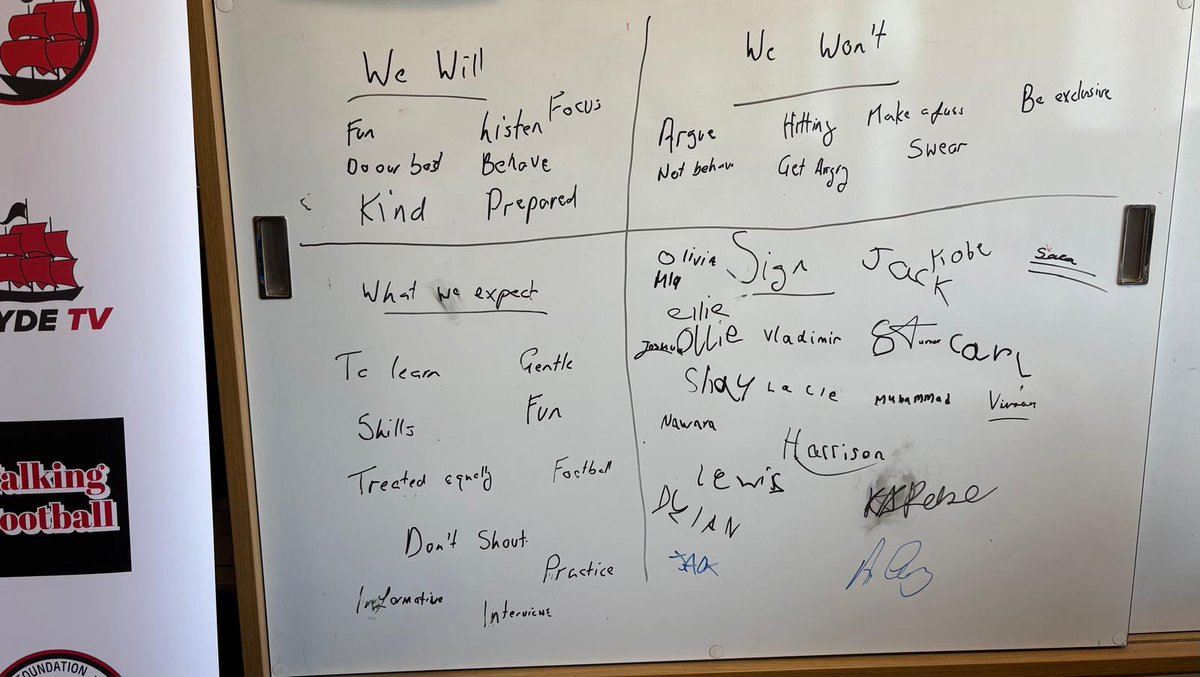 We Will
Fun Listen Focus
Do our best Behave
Kind Prepared
We Won't
Argue Hitting Make a fuss Be exclusive
Not behave Get Angry Swear
What we expect
To learn Gentle
Skills Fun
Treated equally Football
Don't Shout
Practice
Informative Interviews
Sign
Olivia Jack Kobe
Mia
ellie
Joshua Ollie Vladimir Carl
Shay Lacie Muhammad
Nawara
Harrison
Lewis
DEIAN
YDE TV
alking
ootball
FOUNDATION